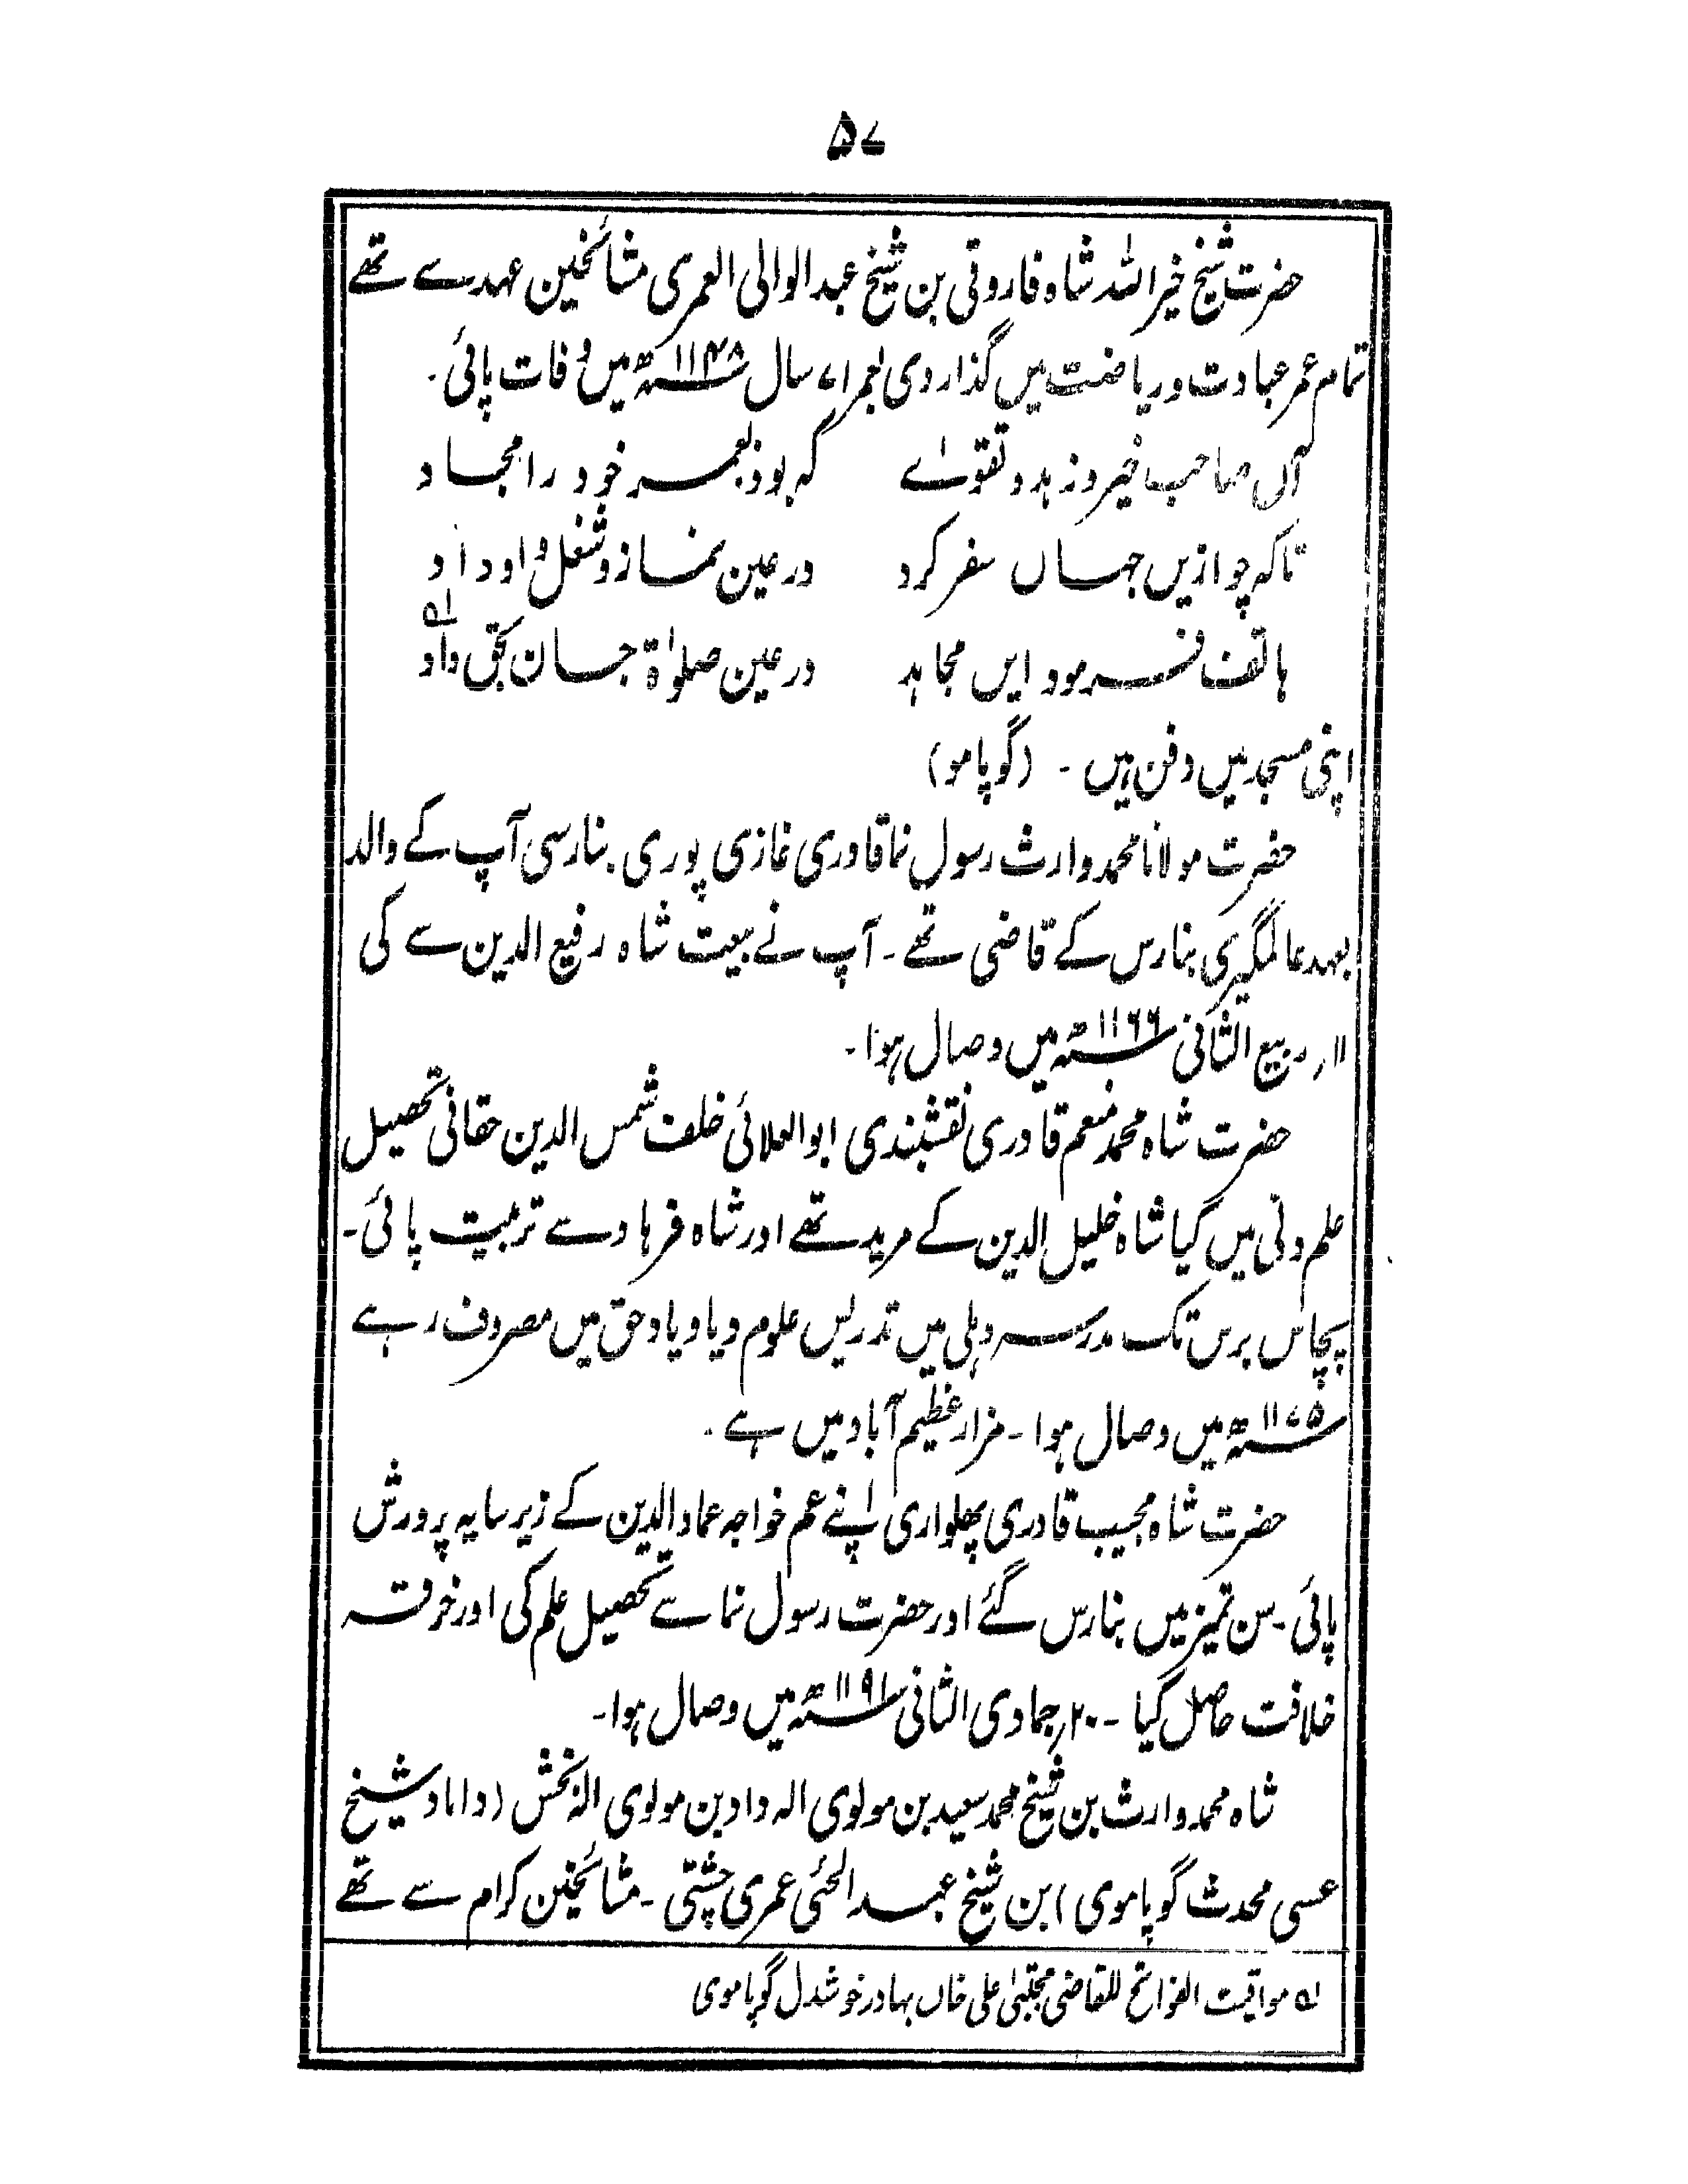 ۵۷
حضرت شیخ خیر اللہ شاہ فاروقی بن شیخ عبد الوالی العمری مشائخین عہد سے تھے
تمام عمر عبادت و ریاضت میں گذار دی بعمر ۷۱ سال ۱۱۴۸ھ میں وفات پائی۔
آں صاحب خیر و زہد و تقوےٰ کہ بود بعمر خود را مجاد
تاکہ چو ازیں جہاں سفر کرد در عین نماز و شغل و اوداد
ہاتف فرمود ایں مجاہد در عین صلوٰۃ جان بحق داد لہ
اپنی مسجد میں دفن ہیں۔ (گوپامو)
حضرت مولانا محمد وارث رسول نما قادری غازی پوری بنارسی آپ کے والد
بعہد عالمگیری بنارس کے قاضی تھے۔ آپ نے بیعت شاہ رفیع الدین سے کی
۱۱؍ ربیع الثانی ۱۱۶۶ھ میں وصال ہوا۔
حضرت شاہ محمد منعم قادری نقشبندی ابوالعلائی خلف شمس الدین حقانی تحصیل
علم دلی میں کیا شاہ خلیل الدین کے مرید تھے اور شاہ فرہاد سے تربیت پائی۔
پچاس برس تک مدرسہ دہلی میں تدریس علوم دیا و یاد حق میں مصروف رہے
۱۱۷۵ھ میں وصال ہوا۔ مزار عظیم آباد میں ہے۔
حضرت شاہ مجیب قادری پھلواری اپنے عم خواجہ عماد الدین کے زیر سایہ پرورش
پائی۔ سن تمیز میں بنارس گئے اور حضرت رسول نما سے تحصیل علم کی اور خرقہ
خلافت حاصل کیا۔ ۲۰؍ جمادی الثانی ۱۱۹۱ھ میں وصال ہوا۔
شاہ محمد وارث بن شیخ محمد سعید بن مولوی الہ داد بن مولوی الہ بخش (داماد شیخ
عسی محدث گوپاموی) بن شیخ عبد الحئی عمری چشتی۔ مشائخین کرام سے تھے
لہ مواقیت الفواتح للقاضی مجتبیٰ علی خاں بہادر خوشدل گوپاموی